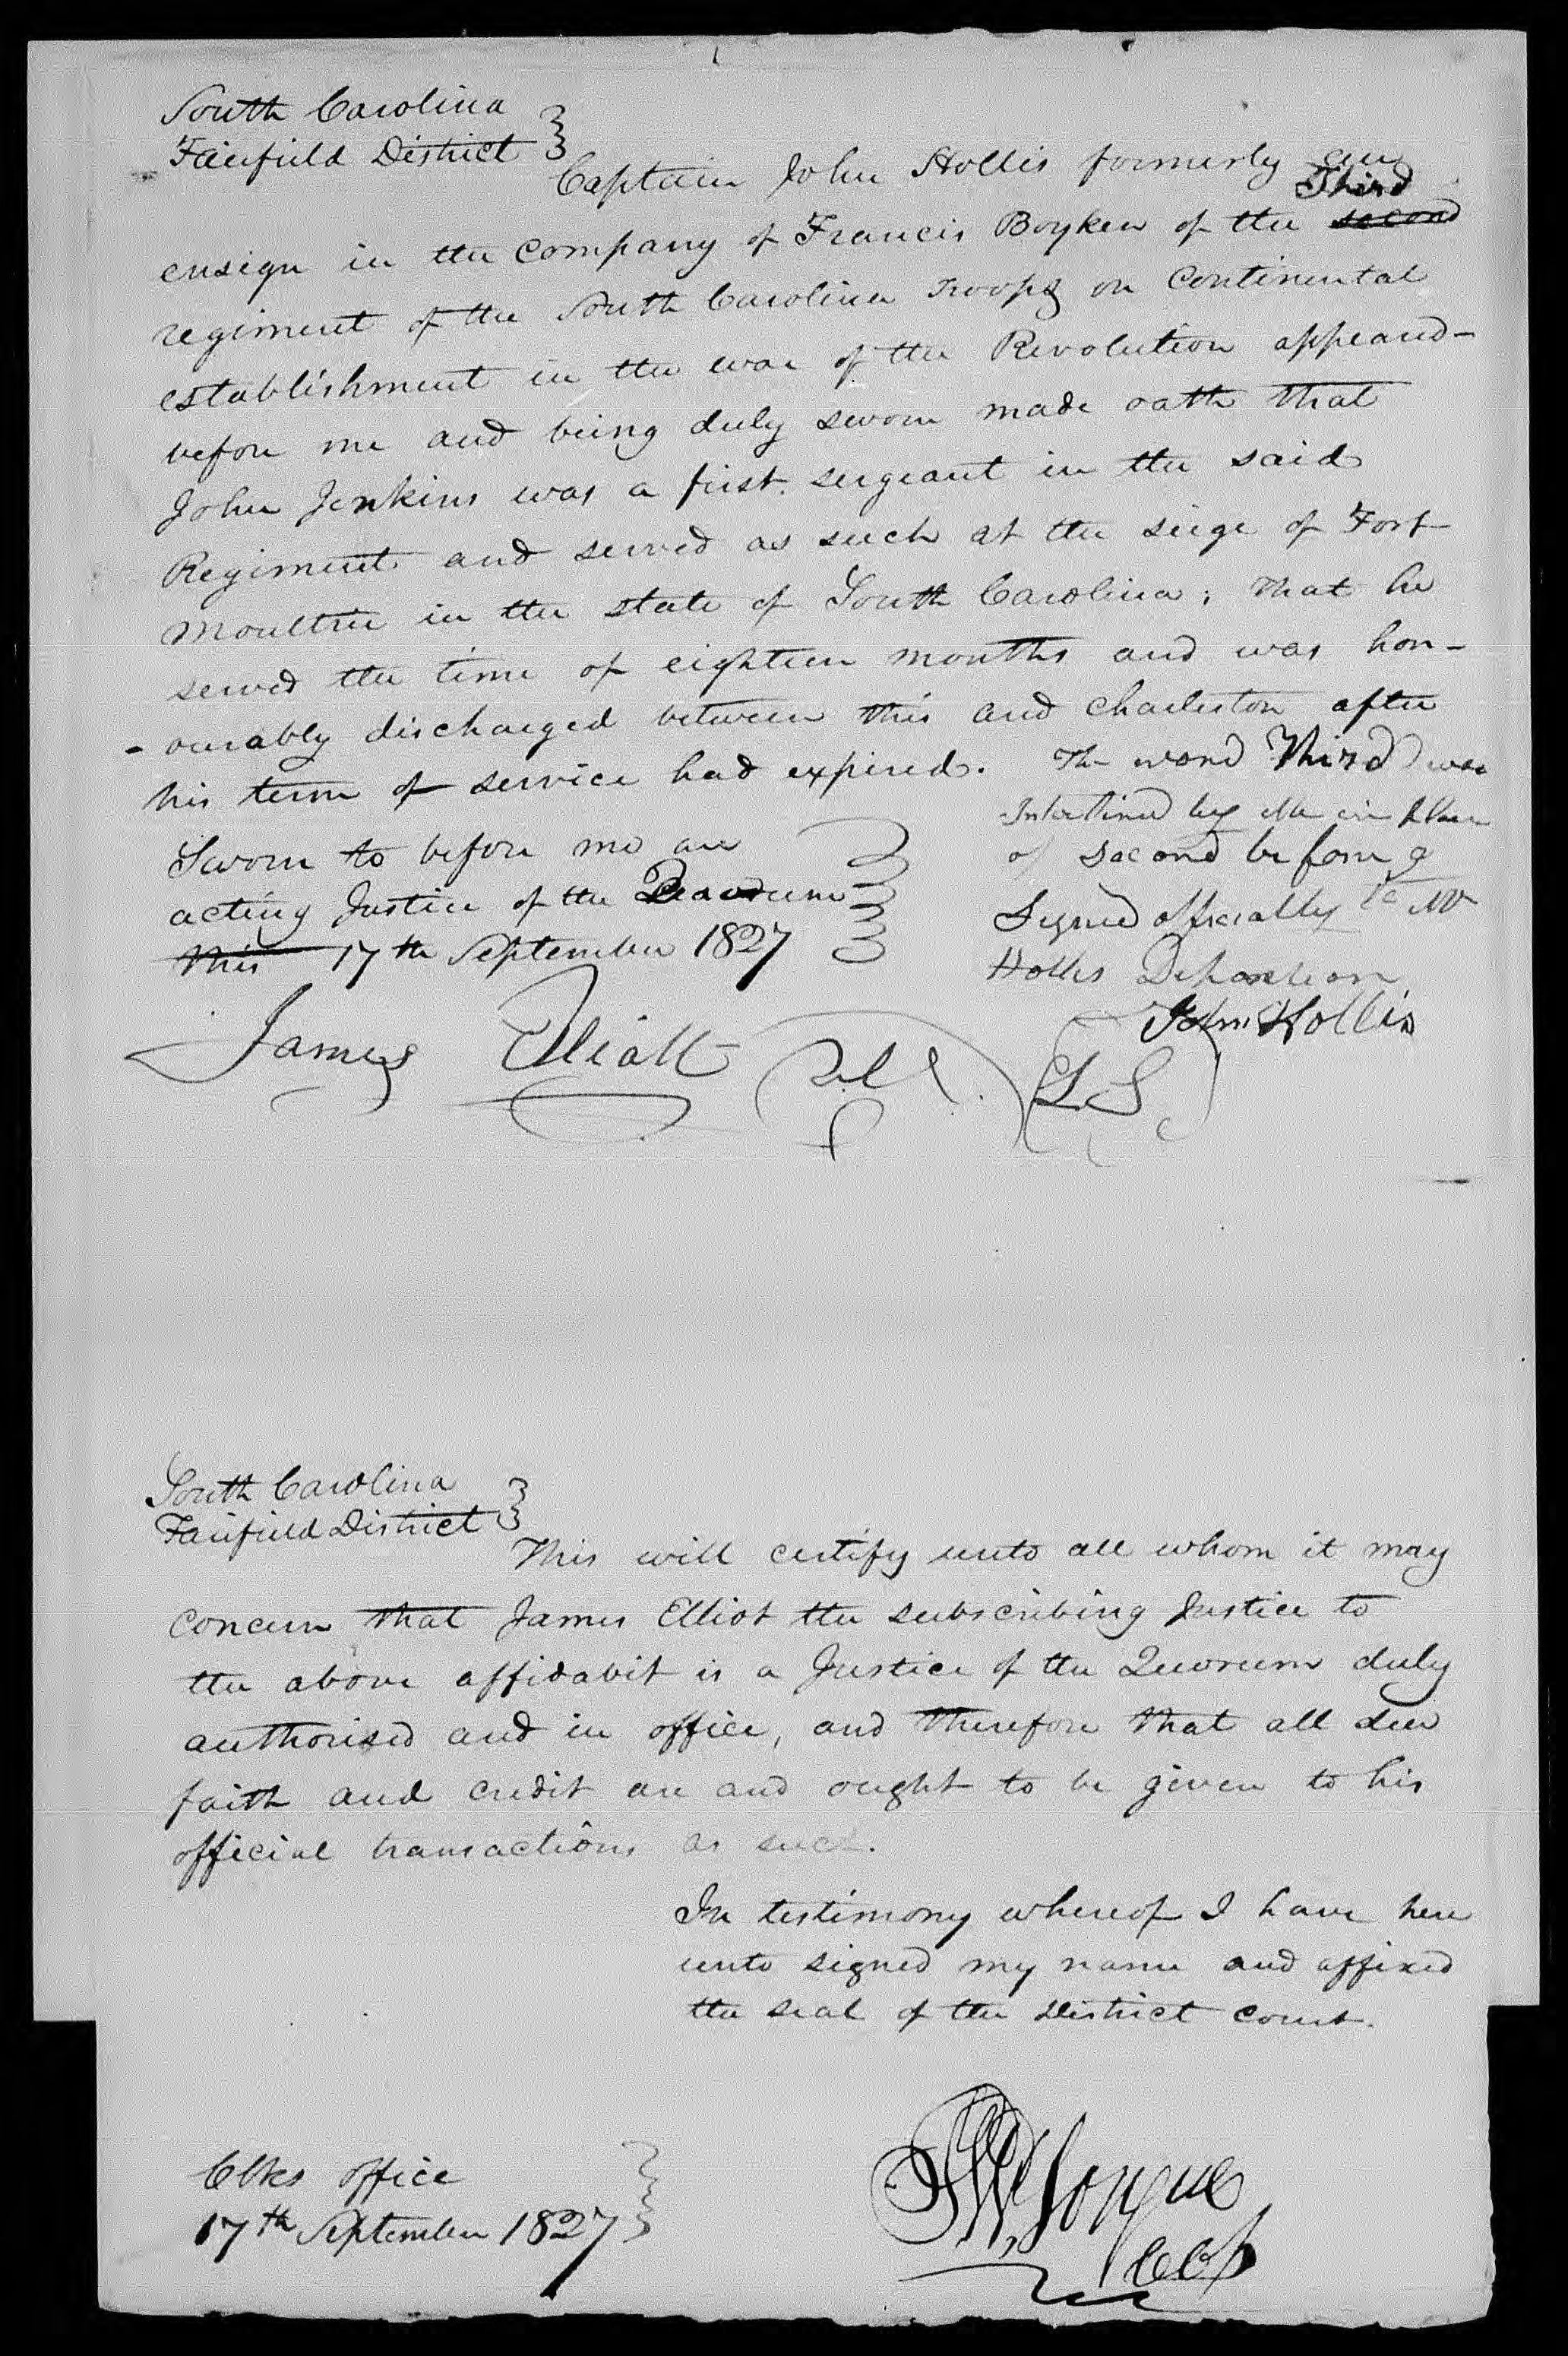 South Carolina
Fairfield District
Captain John Hollis formerly an
Third
ensign in the company of Francis Boyken of the second
regiment of the South Carolina Troops on Continental
establishment in the war of the Revolution appeared
before me and being duly sworn made oath that
John Jenkins was a first sergeant in the said
Regiment and served as such at the seige of Fort
Moultrie in the state of South Carolina; that he
served the time of eighteen months and was hon-
-ourably discharged between this and Charleston after
his term of service had expired. The word Third was
Interlined by Me in place
of Second before I
Signed officially to Mr
Hollis Deposition
Sworn to before me an
acting Justice of the Quorum
this 17th September 1827
John Hollis
James Elliott (L S)
South Carolina
Fairfield District
This will certify unto all whom it may
concern that James Elliot the subscribing Justice to
the above affidavit is a Justice of the Quorum duly
authorised and in office, and therefore that all due
faith and credit are and ought to be given to his
official transactions as such.
In testimony whereof I have here
unto signed my name and affixed
the seal of the District Court.
Clks office
17th September 1827